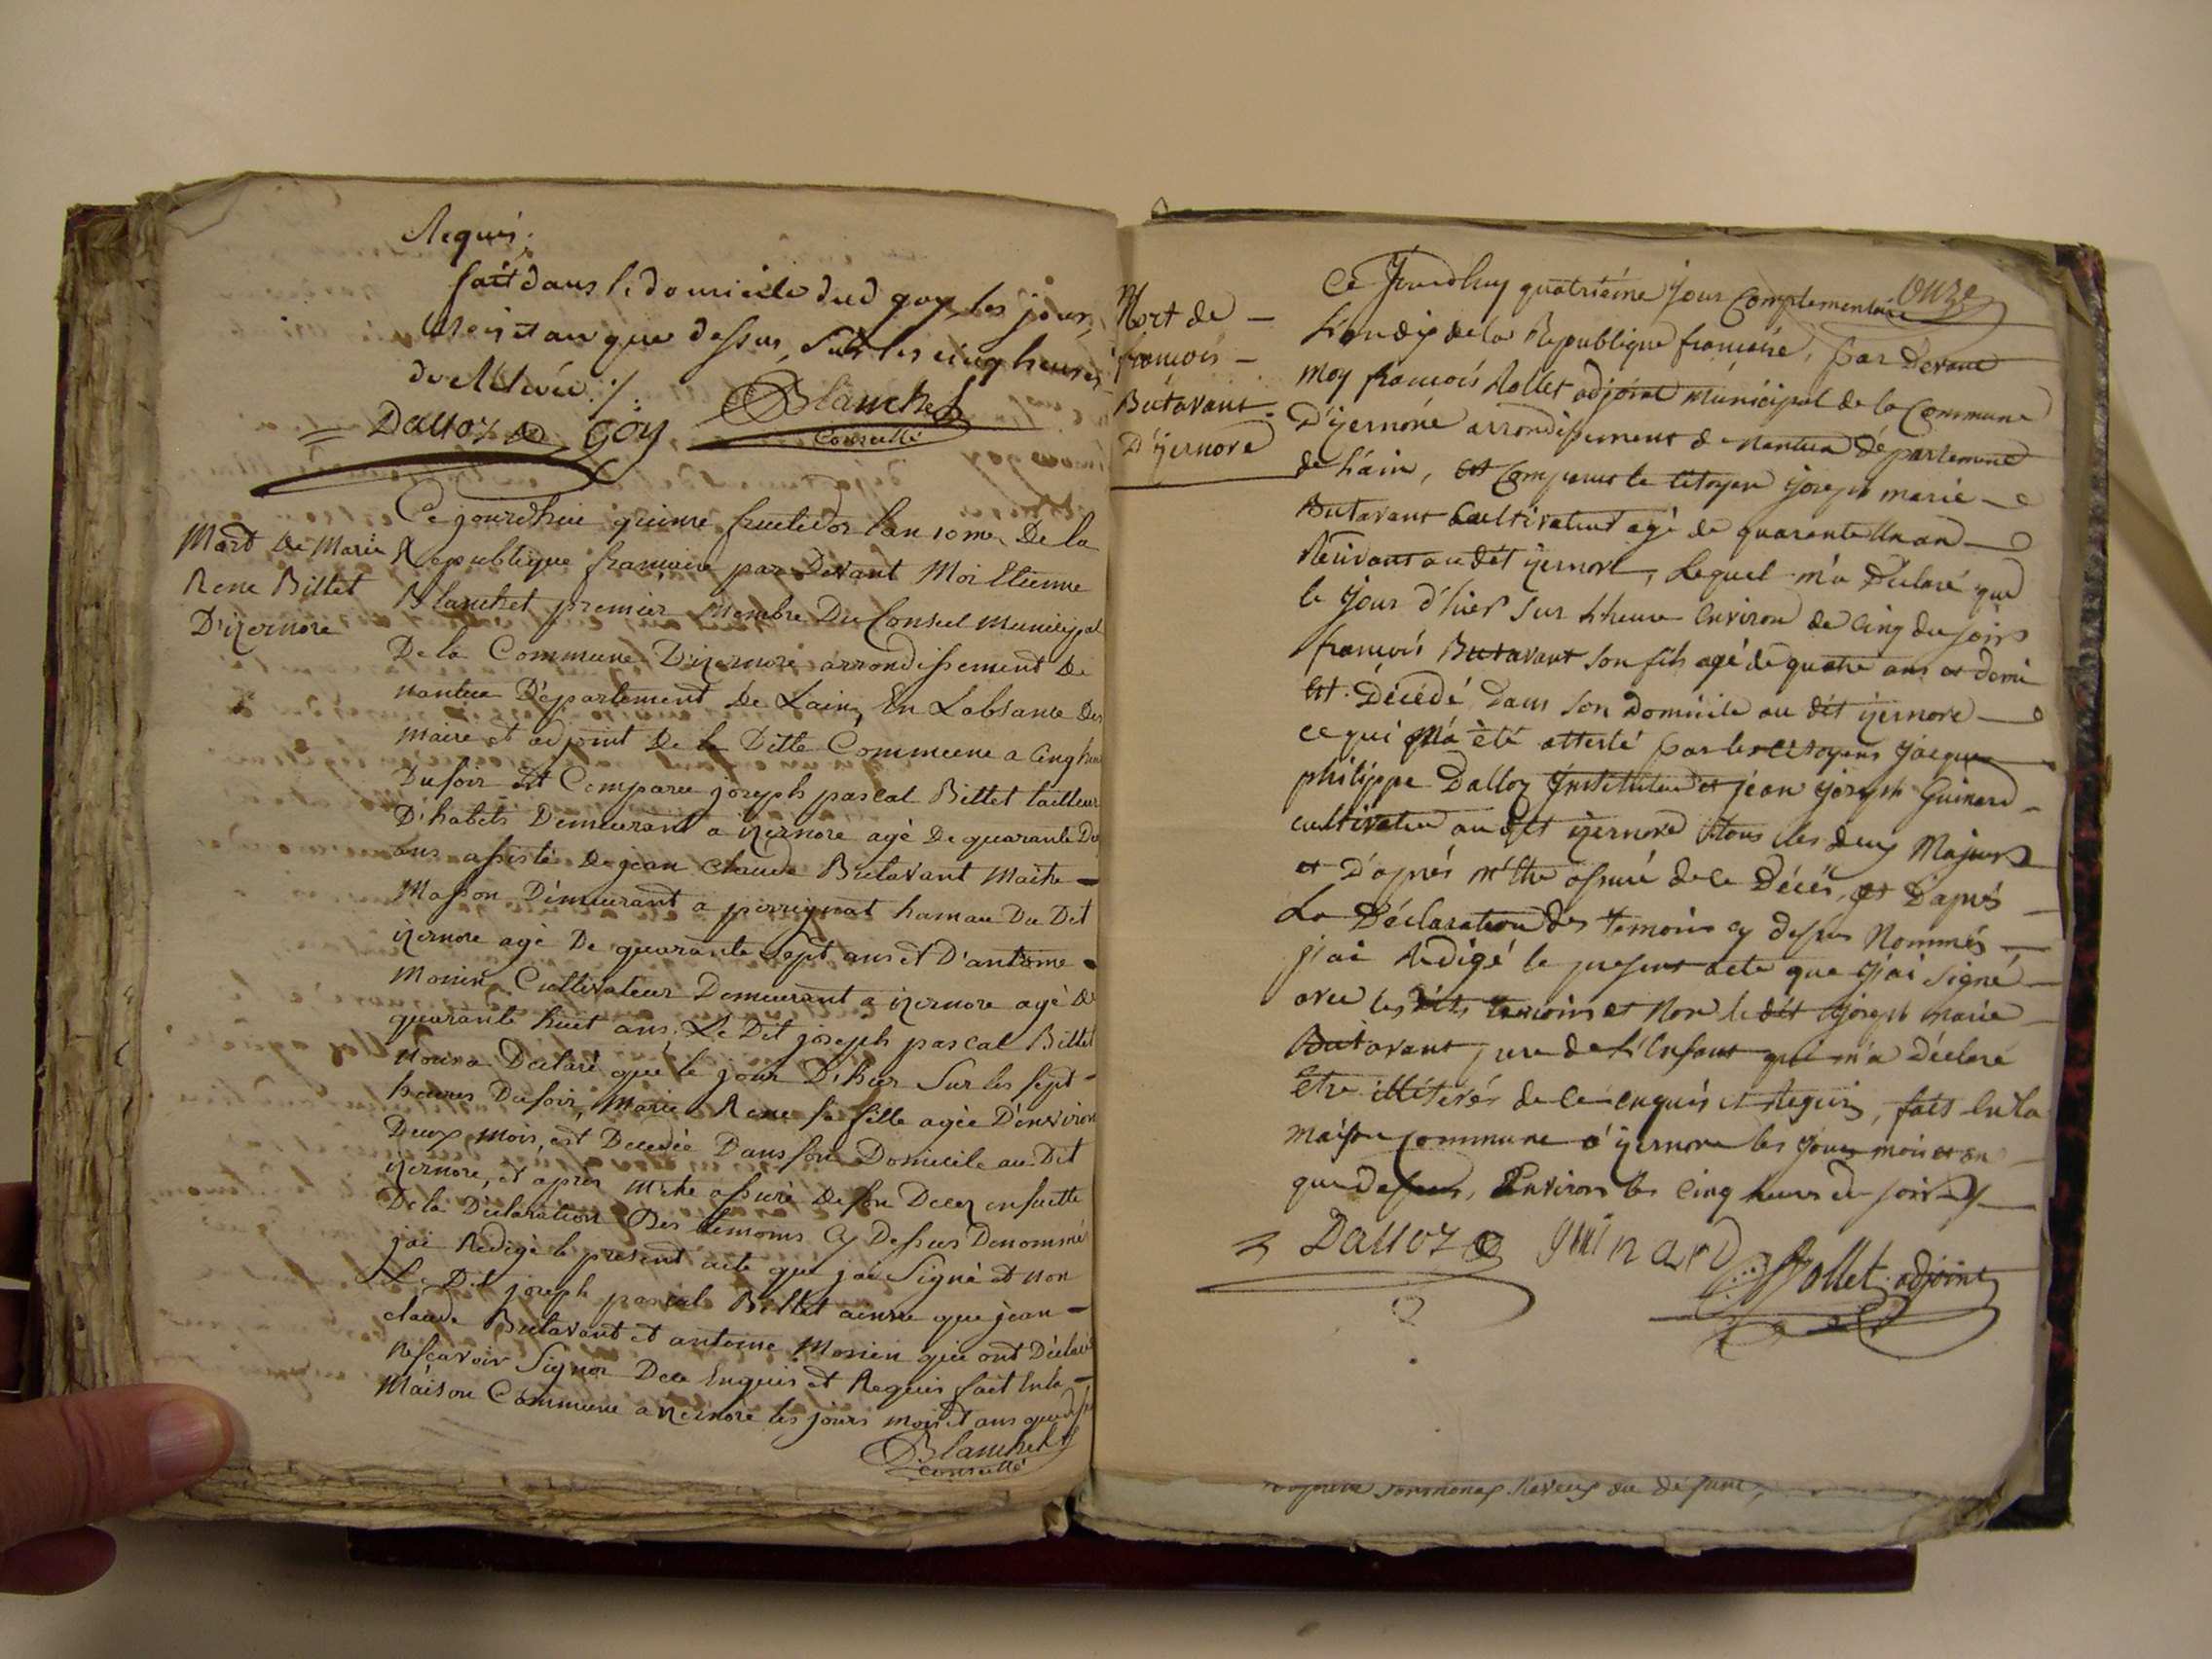 Requis;
fait dans le domicile dud goy, les jour,
Mois et an que dessus, Sur les cinq heures
de Relevée ./.
Dalloz Goy Blanchet
Conseillé
Mort De Marie
Rene Billet
D'izernore
Ce jourdhui quinse fructidor lan 10me De la
Republique française par Devant Moi Etienne
Blanchet premier Membre Du Conseil Municipal
De la Commune D'izernore arrondissement De
nantua Département de Lain, En Labsance Des
maire et adjoint De la Ditte Commune a Cinq heures
Du soir Est Comparu joseph pascal Billet tailleur
D'habits Demeurant a izernore agé De quarante Deux
ans assisté De jean Claude Butavant Maitre
Masson Demeurant a perrignat hamau Du Dit
izernore agé De quarante Sept ans et D'antoine
Monin Cultivateur Demeurant a izernore agé de
quarante huit ans, Le Dit joseph pascal Billet
Nous a Declaré que le jour D'hier Sur les sept
heures Du soir, Marie Rene sa fille agée D'environ
Deux mois, est Decedée Dans son Domicile au Dit
izernore, et apres M'etre assuré De son Decez ensuitte
De la Déclaration Des temoins Cy Dessus Denommé
jai Redigé le present acte que jai Signé et non
Le Dit joseph pascal Billet ainsie que jean
claude Butavant et antoine Monin qui ont Déclaré
ne scavoir Signer De ce Enquis et Requis fait En la
Maison Commune a izernore les jours mois et ans que dessus
Blanchet
Conseillé
Onze
Mort de
francois
Butavant
D'yzernore
Ce Jourdhuy quatriéme jour Complementaire
L'an dix de la Republique francaise, par Devant
Moy francois Rollet adjoint Municipal de la Commune
D'yzernore arrondissement de Nantua Département
de L'ain, est Comparus le Citoyen joseph marie
Butavant Cultivateur agé de quarente un an
Résidant au dit yzernore, Lequel m'a Déclaré que
le jour d'hier sur l'heure environ de cinq du soir
francois Butavant son fils agé de quatre ans et demi
est Décédé dans son Domicile au dit yzernore
ce qui M'a été attesté par les citoyens jacque
philippe Dalloz Instituteur et jean joseph Guinard
cultivateur au dit yzernore tous les deux Majeurs
et D'après m'être assuré de ce Décés, et D'après
La Déclaration des temoins cy dessus Nommés
j'ai Rédigé le present acte que j'ai signé
avec les dits temoins et Non le dit joseph marie
Butavant pere de L'enfant qui m'a Déclaré
être illitérés de ce enquis et Requis, fait en la
maison commune d'yzernore les jour mois et an
que dessus, Environ les cinq heures du soir
Dalloz guinard Rollet adjoint